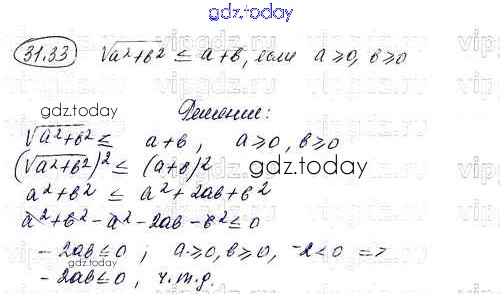 gdz.today
31.33 √a²+b² ≤ a+b, если a≥0, b≥0
gdz.today
Решение:
√a²+b² ≤ a+b, a≥0, b≥0
(√a²+b²)² ≤ (a+b)²
gdz.today
a²+b² ≤ a²+2ab+b²
a²+b²-a²-2ab-b²≤0
-2ab≤0; a≥0, b≥0, -2<0 =>
-2ab≤0, ч.т.д.